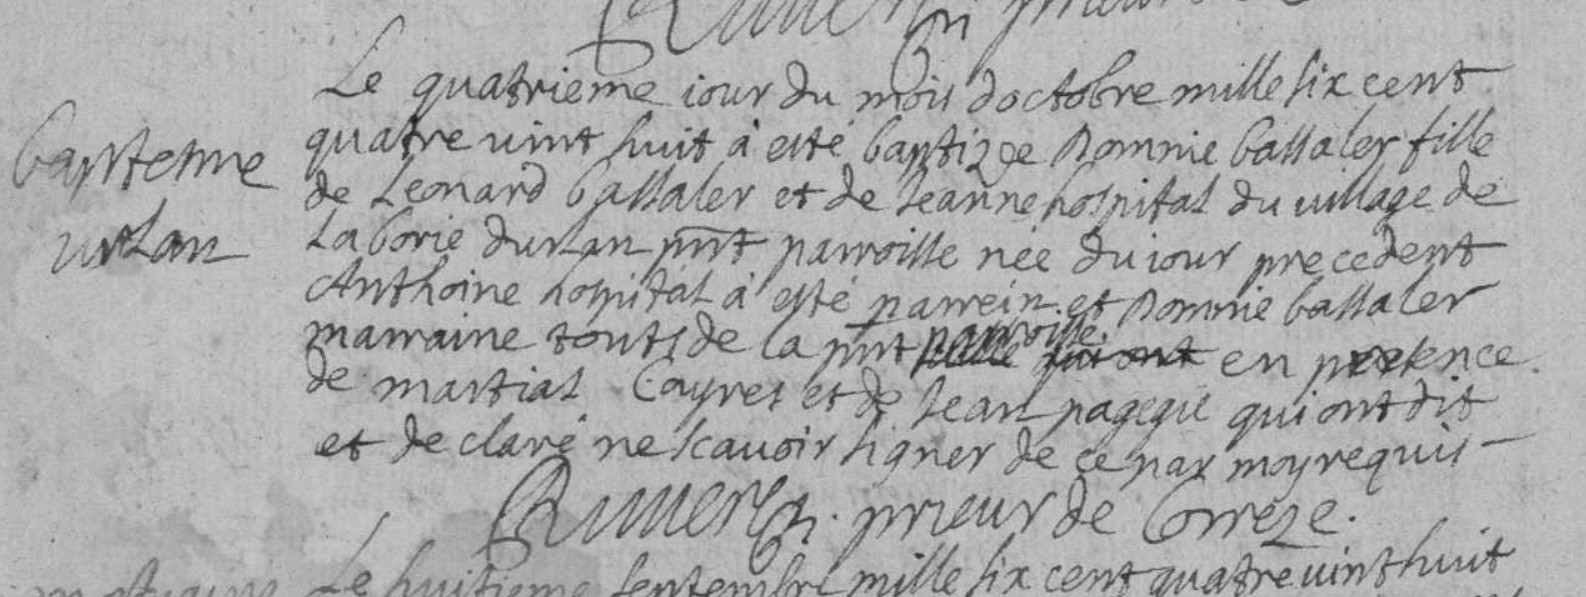 prieur
Le quatrieme iour du mois doctobre mille six cent
baptesme
quatre vint huit à esté baptizée Nommie bassaler fille
de Leonard bassaler et de Jeanne hospital du village de
urlan
Laborie durlan pnt parroisse née du iour precedent
Anthoine hospital à esté parrein et Nommie bassaler
marraine touts de la pnt parroisse en presence
de martial Cayres et de Jean pagegie qui ont dit
et declaré ne scavoir signer de ce par moy requis
prieur de Correze.
Le huitieme septembre mille six cent quatre vint huit